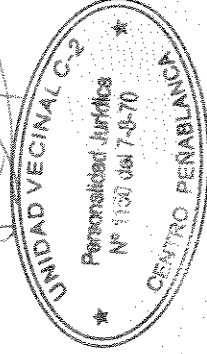 UNIDAD VECINAL C-2
Personalidad Jurídica
Nº 1150 del 7-8-70
CENTRO PEÑABLANCA